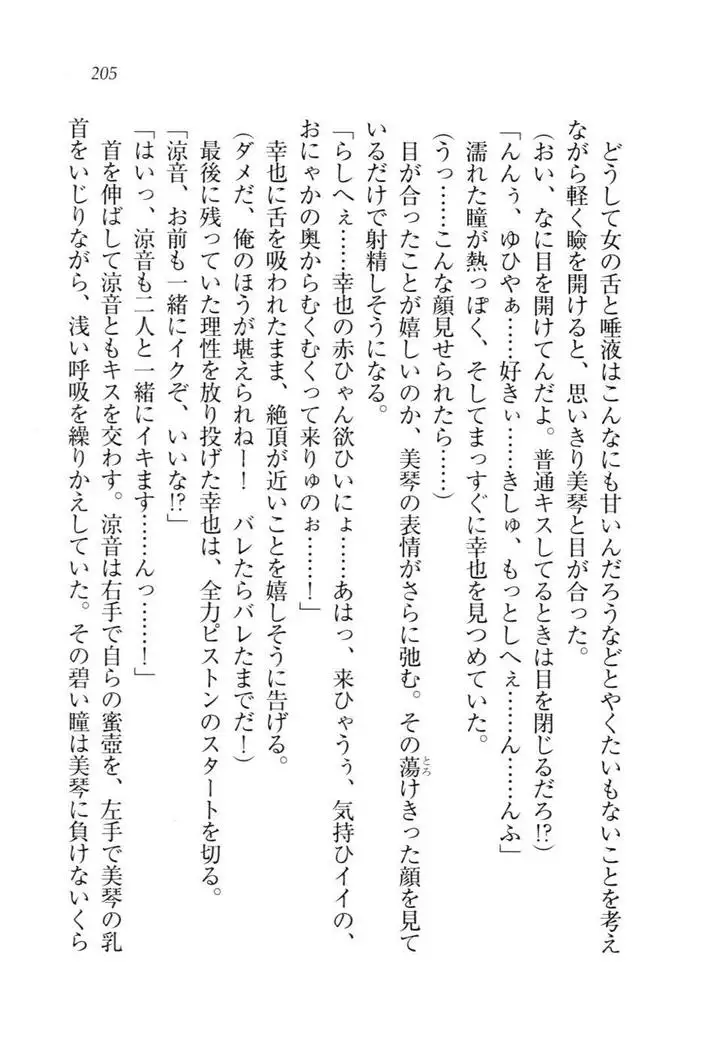 205
どうして女の舌と唾液はこんなにも甘いんだろうなどとやくたいもないことを考え
ながら軽く瞼を開けると、思いきり美琴と目が合った。
(おい、なに目を開けてんだよ。普通キスしてるときは目を閉じるだろ!?)
「んんぅ、ゆひやぁ……好きぃ……きしゅ、もっとしへぇ……ん……んふ」
濡れた瞳が熱っぽく、そしてまっすぐに幸也を見つめていた。
(うっ……こんな顔見せられたら……)
目が合ったことが嬉しいのか、美琴の表情がさらに弛む。その蕩けきった顔を見て
とろ
いるだけで射精しそうになる。
「らしへぇ……幸也の赤ひゃん欲ひいにょ……あはっ、来ひゃうぅ、気持ひイイの、
おにゃかの奥からむくむくって来りゅのぉ……!」
幸也に舌を吸われたまま、絶頂が近いことを嬉しそうに告げる。
(ダメだ、俺のほうが堪えられねー! バレたらバレたまでだ!)
最後に残っていた理性を放り投げた幸也は、全力ピストンのスタートを切る。
「涼音、お前も一緒にイクぞ、いいな!?」
「はいっ、涼音も二人と一緒にイキます……んっ……!」
首を伸ばして涼音ともキスを交わす。涼音は右手で自らの蜜壺を、左手で美琴の乳
首をいじりながら、浅い呼吸を繰りかえしていた。その碧い瞳は美琴に負けないくら